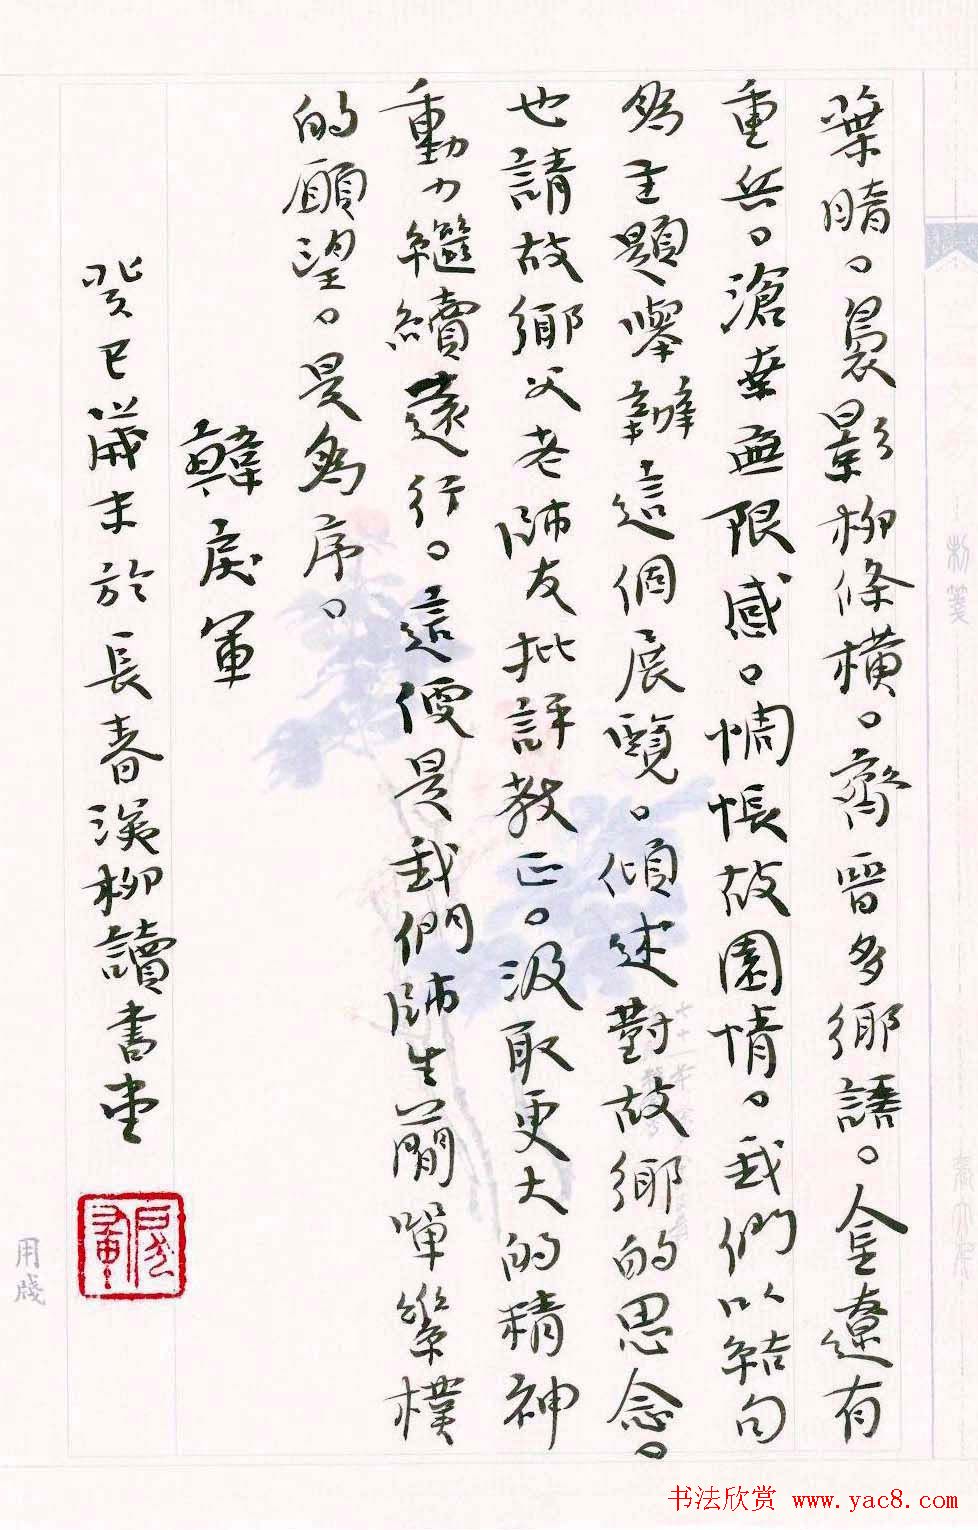 葉晴。裊影柳條橫。齊晉多鄉語。金遼有
重兵。滄桑無限感。惆悵故園情。我們以結句
為主題舉辦這個展覽。傾述對故鄉的思念。
也請故鄉父老師友批評教正。汲取更大的精神
動力繼續遠行。這便是我們師生簡單樸
的願望。是為序。
韓戾軍
癸巳歲末於長春溪柳讀書堂
用牋
书法欣赏 www.yac8.com